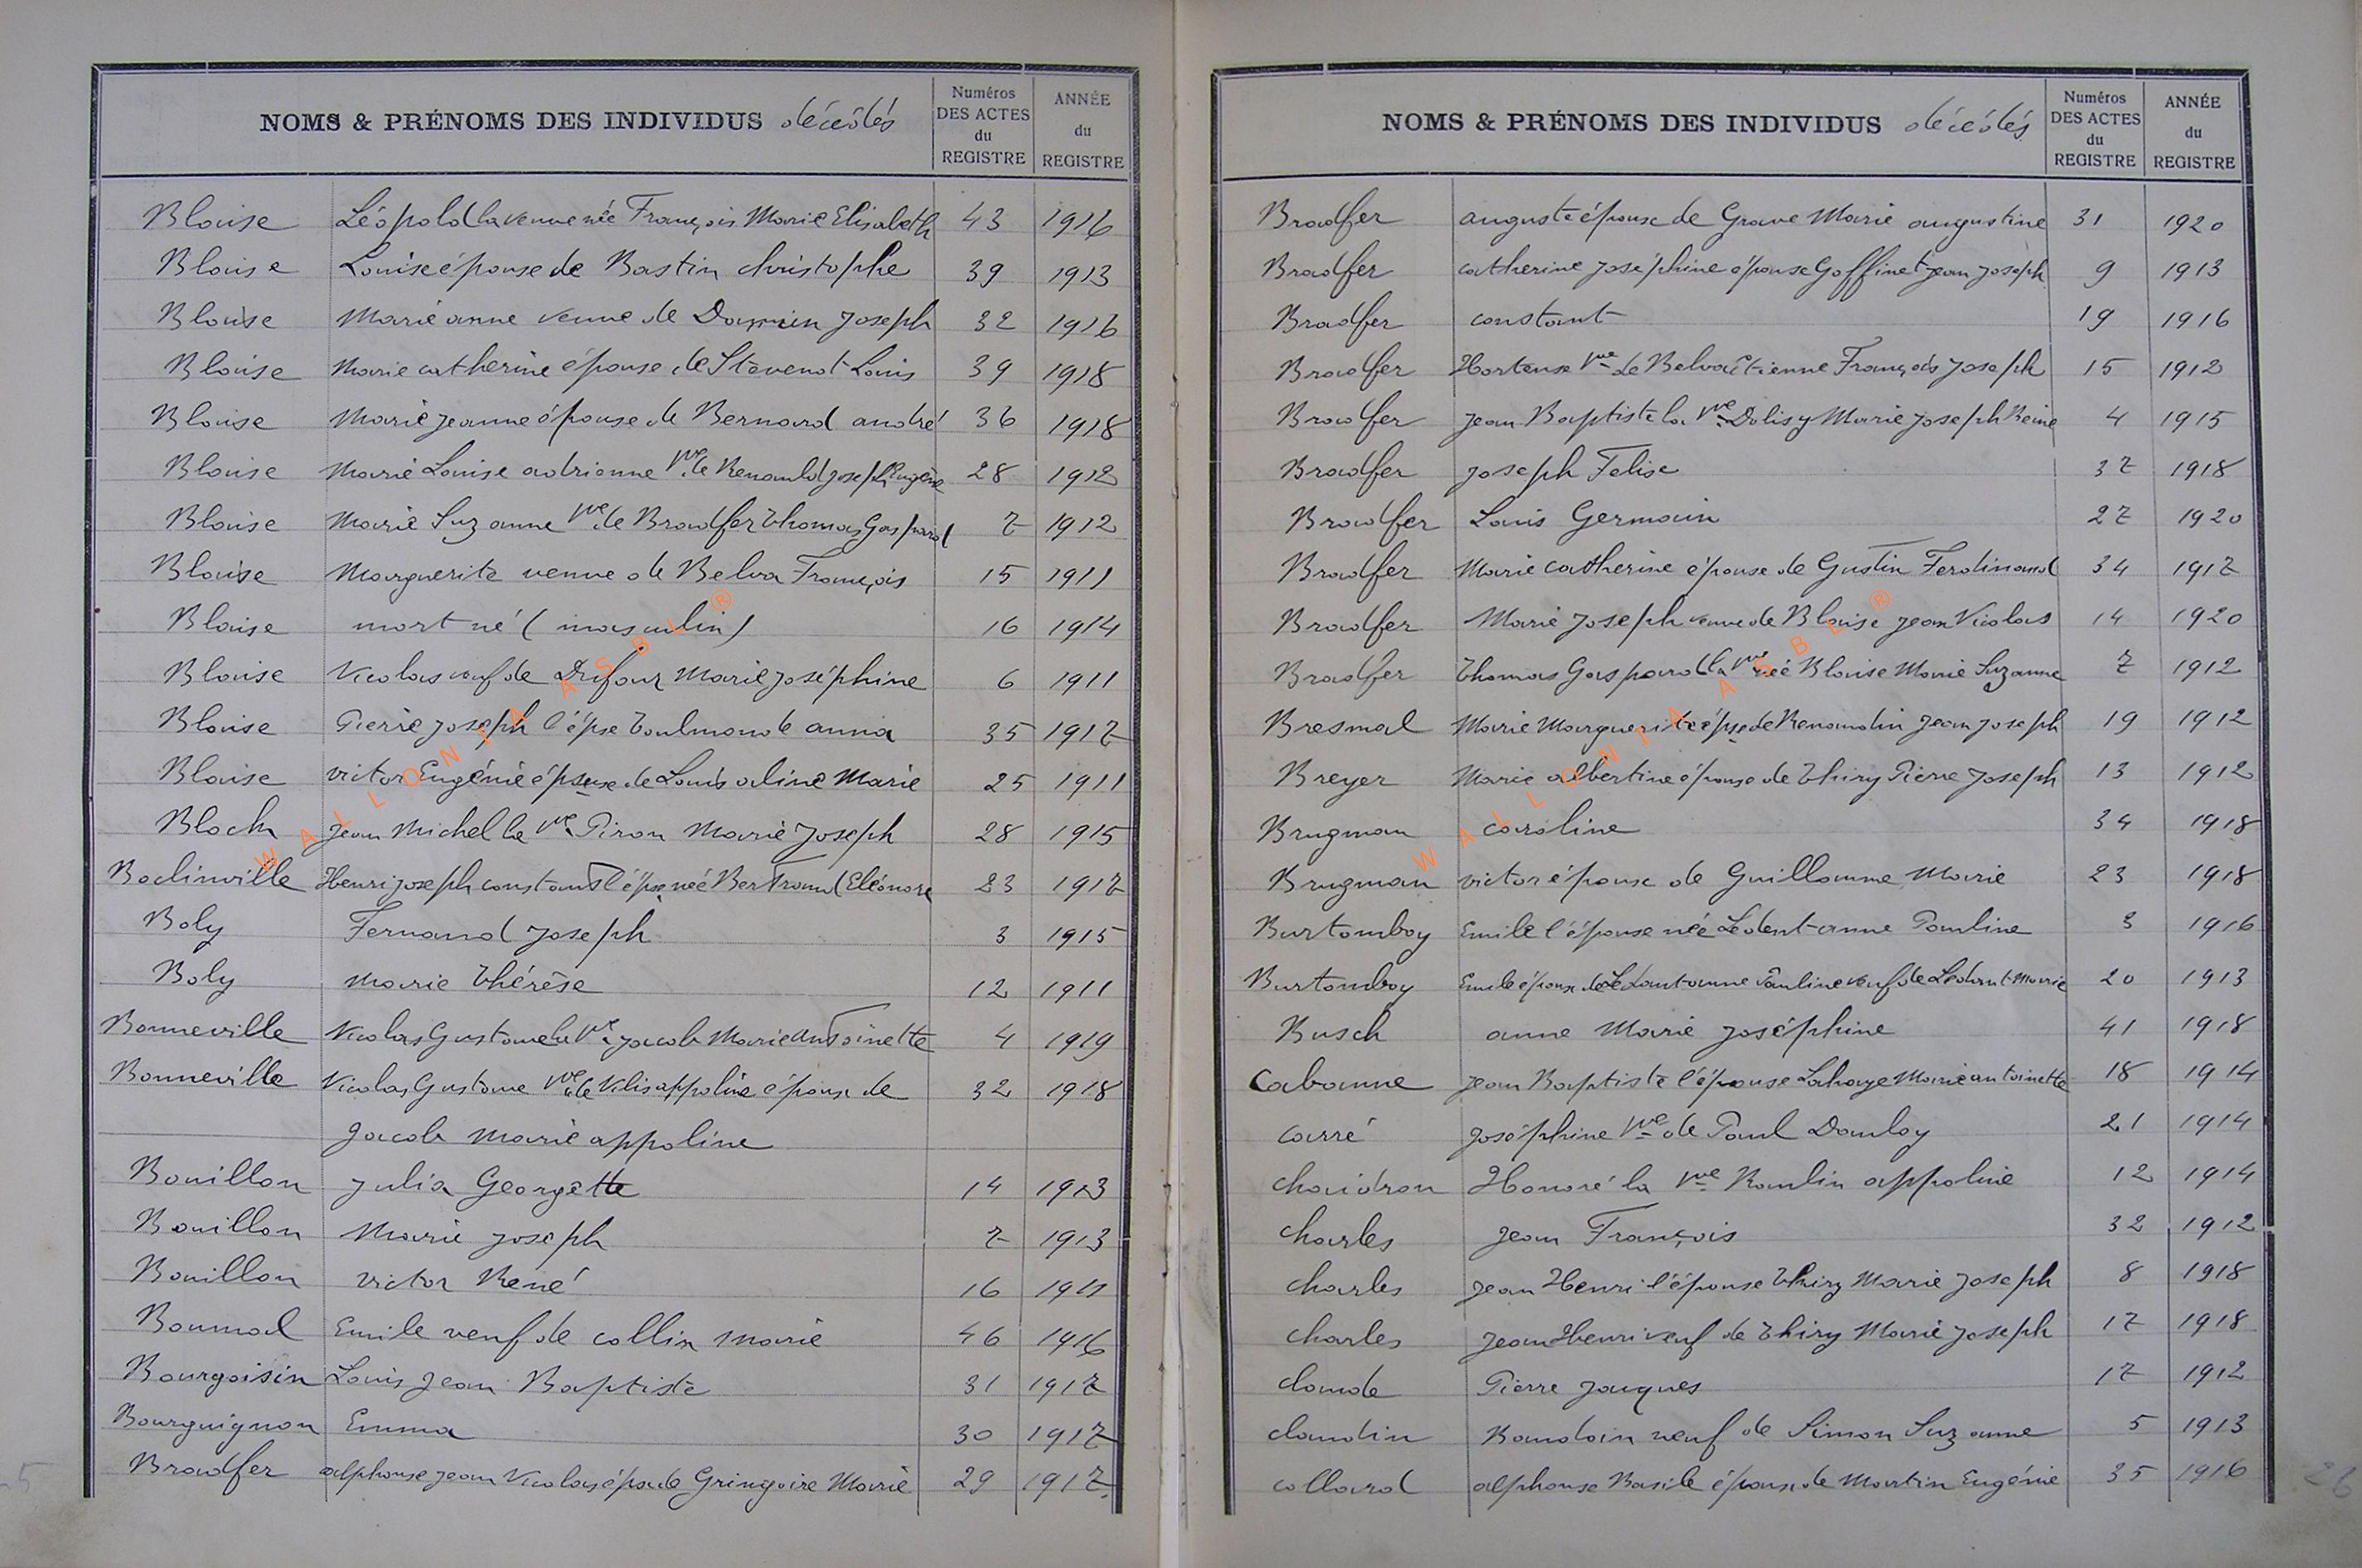 NOMS & PRÉNOMS DES INDIVIDUS décédés Numéros DES ACTES du REGISTRE ANNÉE du REGISTRE
Blaise Léopold la veuve née François Marie Elisabeth 43 1916
Blaise Louis époux de Bastin christophe 39 1913
Blaise Marie anne veuve de Joseph 32 1916
Blaise Marie catherine épouse de Stevenot Louis 39 1918
Blaise Marie jeanne épouse de Bernard andré 36 1918
Blaise Marie Louise adrienne Vve de Renauld joseph Eugène 28 1912
Blaise Marie Suzanne Vve de Bradfer Thomas Gaspard 7 1912
Blaise Marguerite veuve de Belva François 15 1911
Blaise mort né (masculin) 16 1914
Blaise Nicolas veuf de Dufour Marie joséphine 6 1911
Blaise Pierre joseph l'épse Toulmonde anna 35 1917
Blaise victor Eugénie épouse de Louis aline Marie 25 1911
Bloch jean Michel la Vve Piron Marie Joseph 28 1915
Bodinville Henri joseph constant l'épse née Bertrand Eléonore 23 1917
Boly Fernand joseph 3 1915
Boly Marie Thérèse 12 1911
Bonneville Nicolas Gustave la Vve jacob Marie antoinette 4 1919
Bonneville Nicolas Gustave Vve de Vilis appoline époux de 32 1918
jacob Marie appoline
Bouillon Julia Georgette 14 1913
Bouillon Marie joseph 7 1913
Bouillon victor René 16 1911
Boumal Emile veuf de collin Marie 46 1916
Bourgoisin Louis jean Baptiste 31 1917
Bourguignon Emma 30 1917
Bradfer alphonse jean Nicolas époux de Gringoire Marie 29 1917
NOMS & PRÉNOMS DES INDIVIDUS décédés Numéros DES ACTES du REGISTRE ANNÉE du REGISTRE
Bradfer auguste époux de Grave Marie augustine 31 1920
Bradfer catherine joséphine épouse Goffinet jean joseph 9 1913
Bradfer constant 19 1916
Bradfer Hortense Vve de Belva Etienne François Joseph 15 1912
Bradfer jean Baptiste la Vve Dolisy Marie joseph Reine 4 1915
Bradfer joseph Felise 37 1918
Bradfer Louis Germain 27 1920
Bradfer Marie catherine épouse de Gustin Ferdinand 34 1917
Bradfer Marie Joseph veuve de Blaise jean Nicolas 14 1920
Bradfer Thomas Gaspard la Vve née Blaise Marie Suzanne 7 1912
Bresmal Marie Marguerite épse de Renaudin jean joseph 19 1912
Breyer Marie albertine épouse de Thiry Pierre Joseph 13 1912
Brugman caroline 34 1918
Brugman victor époux de Guillaume Marie 23 1918
Burtomboy Emile l'épouse née Ledent anne Pauline 3 1916
Burtomboy Emile époux de Ledant anne Pauline veuf de Ledant Marie 20 1913
Busch anne Marie joséphine 41 1918
Cabanne jean Baptiste l'épouse Lahaye Marie antoinette 18 1914
carré joséphine Vve de Paul Dauloy 21 1914
chaidron Honoré la Vve Raulin appoline 12 1914
charles jean François 32 1912
charles jean Henri l'épouse Thiry Marie Joseph 8 1918
charles jean Henri veuf de Thiry Marie joseph 17 1918
claude Pierre jacques 17 1912
claudin Baudoin veuf de Simon Suzanne 5 1913
collard alphonse Basile époux de Martin Eugénie 35 1916
26
WALLONIA ASBL ®
WALLONIA ASBL ®